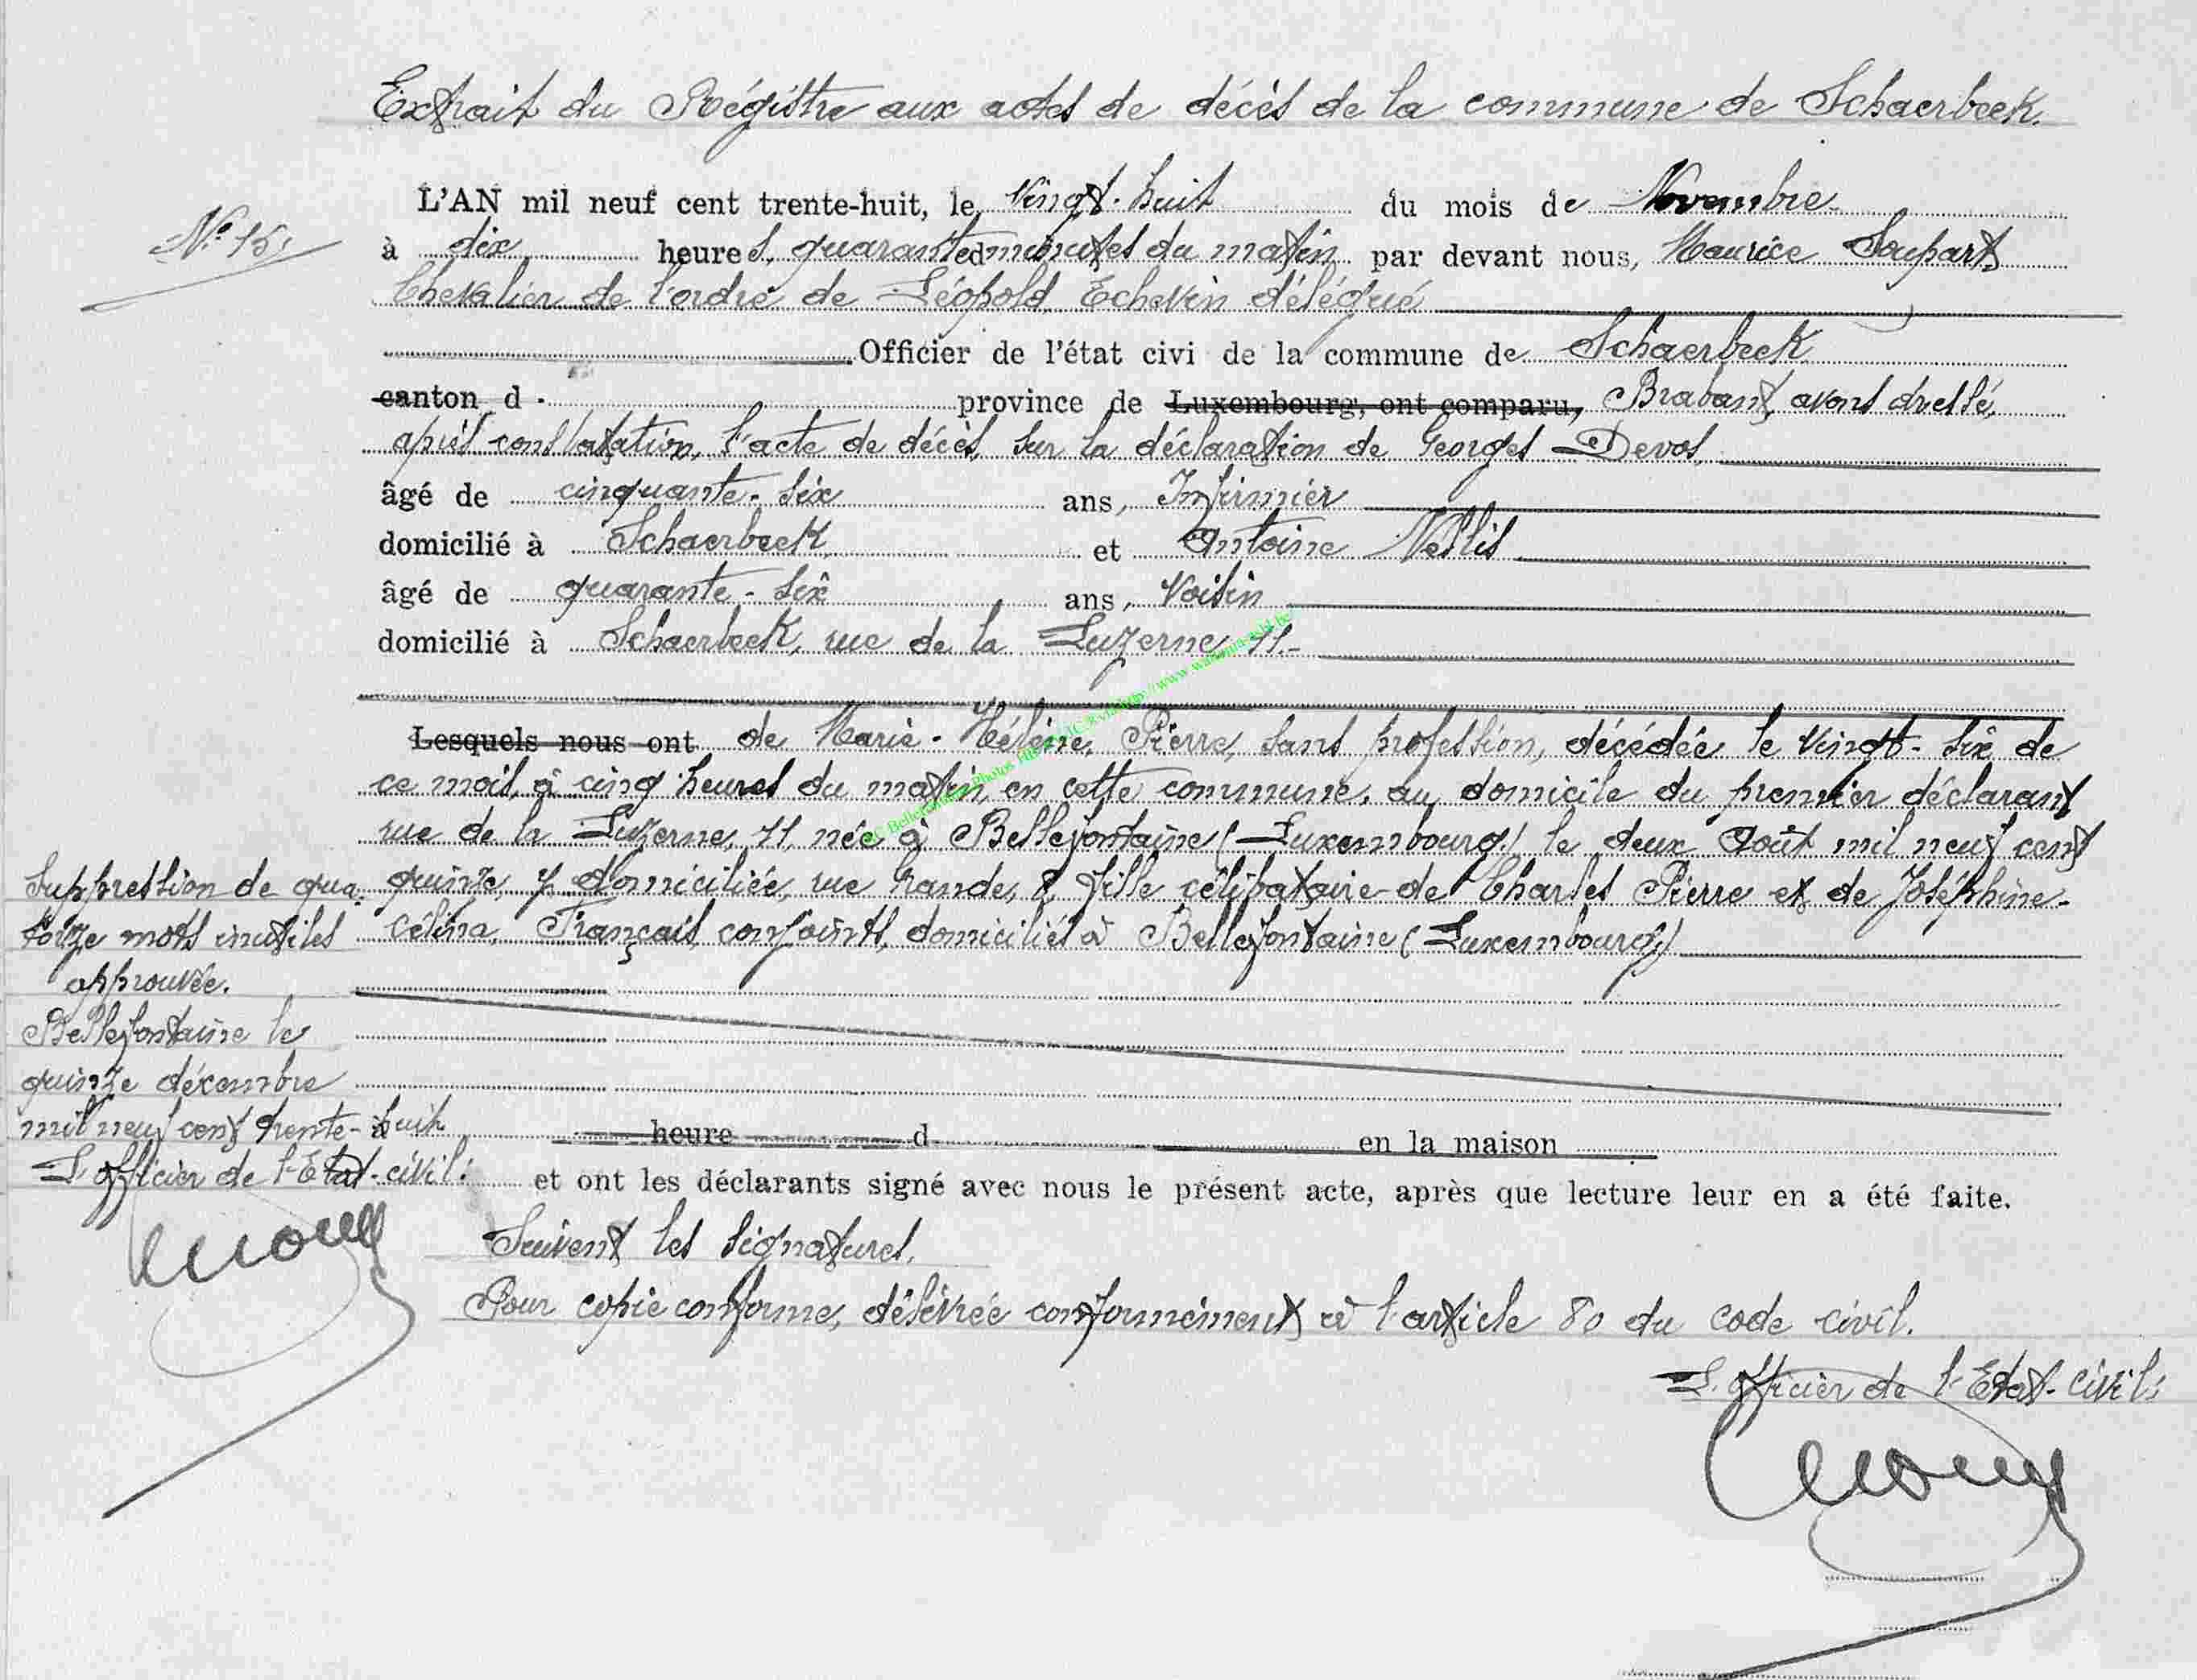 Extrait du Régistre aux actes de décès de la commune de Schaerbeek.
L'AN mil neuf cent trente-huit, le Vingt-huit du mois de Novembre
N° 15.
à dix heures, quarante minutes du matin par devant nous, Maurice Soupart
Chevalier de l'ordre de Léopold, Echevin délégué
Officier de l'état civi de la commune de Schaerbeek
canton d province de Luxembourg, ont comparu, Brabant, avons dressé,
après constatation, l'acte de décès, sur la déclaration de Georges Devos,
âgé de cinquante-six ans, Infirmier
domicilié à Schaerbeek et Antoine Nellis
âgé de quarante-six ans, Voisin
domicilié à Schaerbeek, rue de la Luzerne, 11.-
Lesquels nous ont de Marie-Hélène, Pierre, sans profession, décédée le vingt-six de
ce mois, à cinq heures du matin, en cette commune, au domicile du premier déclarant
rue de la Luzerne, 11, née à Bellefontaine (Luxembourg) le deux Août mil neuf cent
quinze, y domiciliée, rue Grande, fille célibataire de Charles Pierre et de Joséphine-
Célina, Français, conjoints, domiciliés à Bellefontaine (Luxembourg)
Suppression de qua-
torze mots inutiles
approuvée.
Bellefontaine le
quinze décembre
mil neuf cent trente-huit
L'officier de l'Etat-civil:
à heure d en la maison
et ont les déclarants signé avec nous le présent acte, après que lecture leur en a été faite.
Suivent les signatures.
Pour copie conforme, délivrée conformément à l'article 80 du code civil.
L'officier de l'Etat-civil: